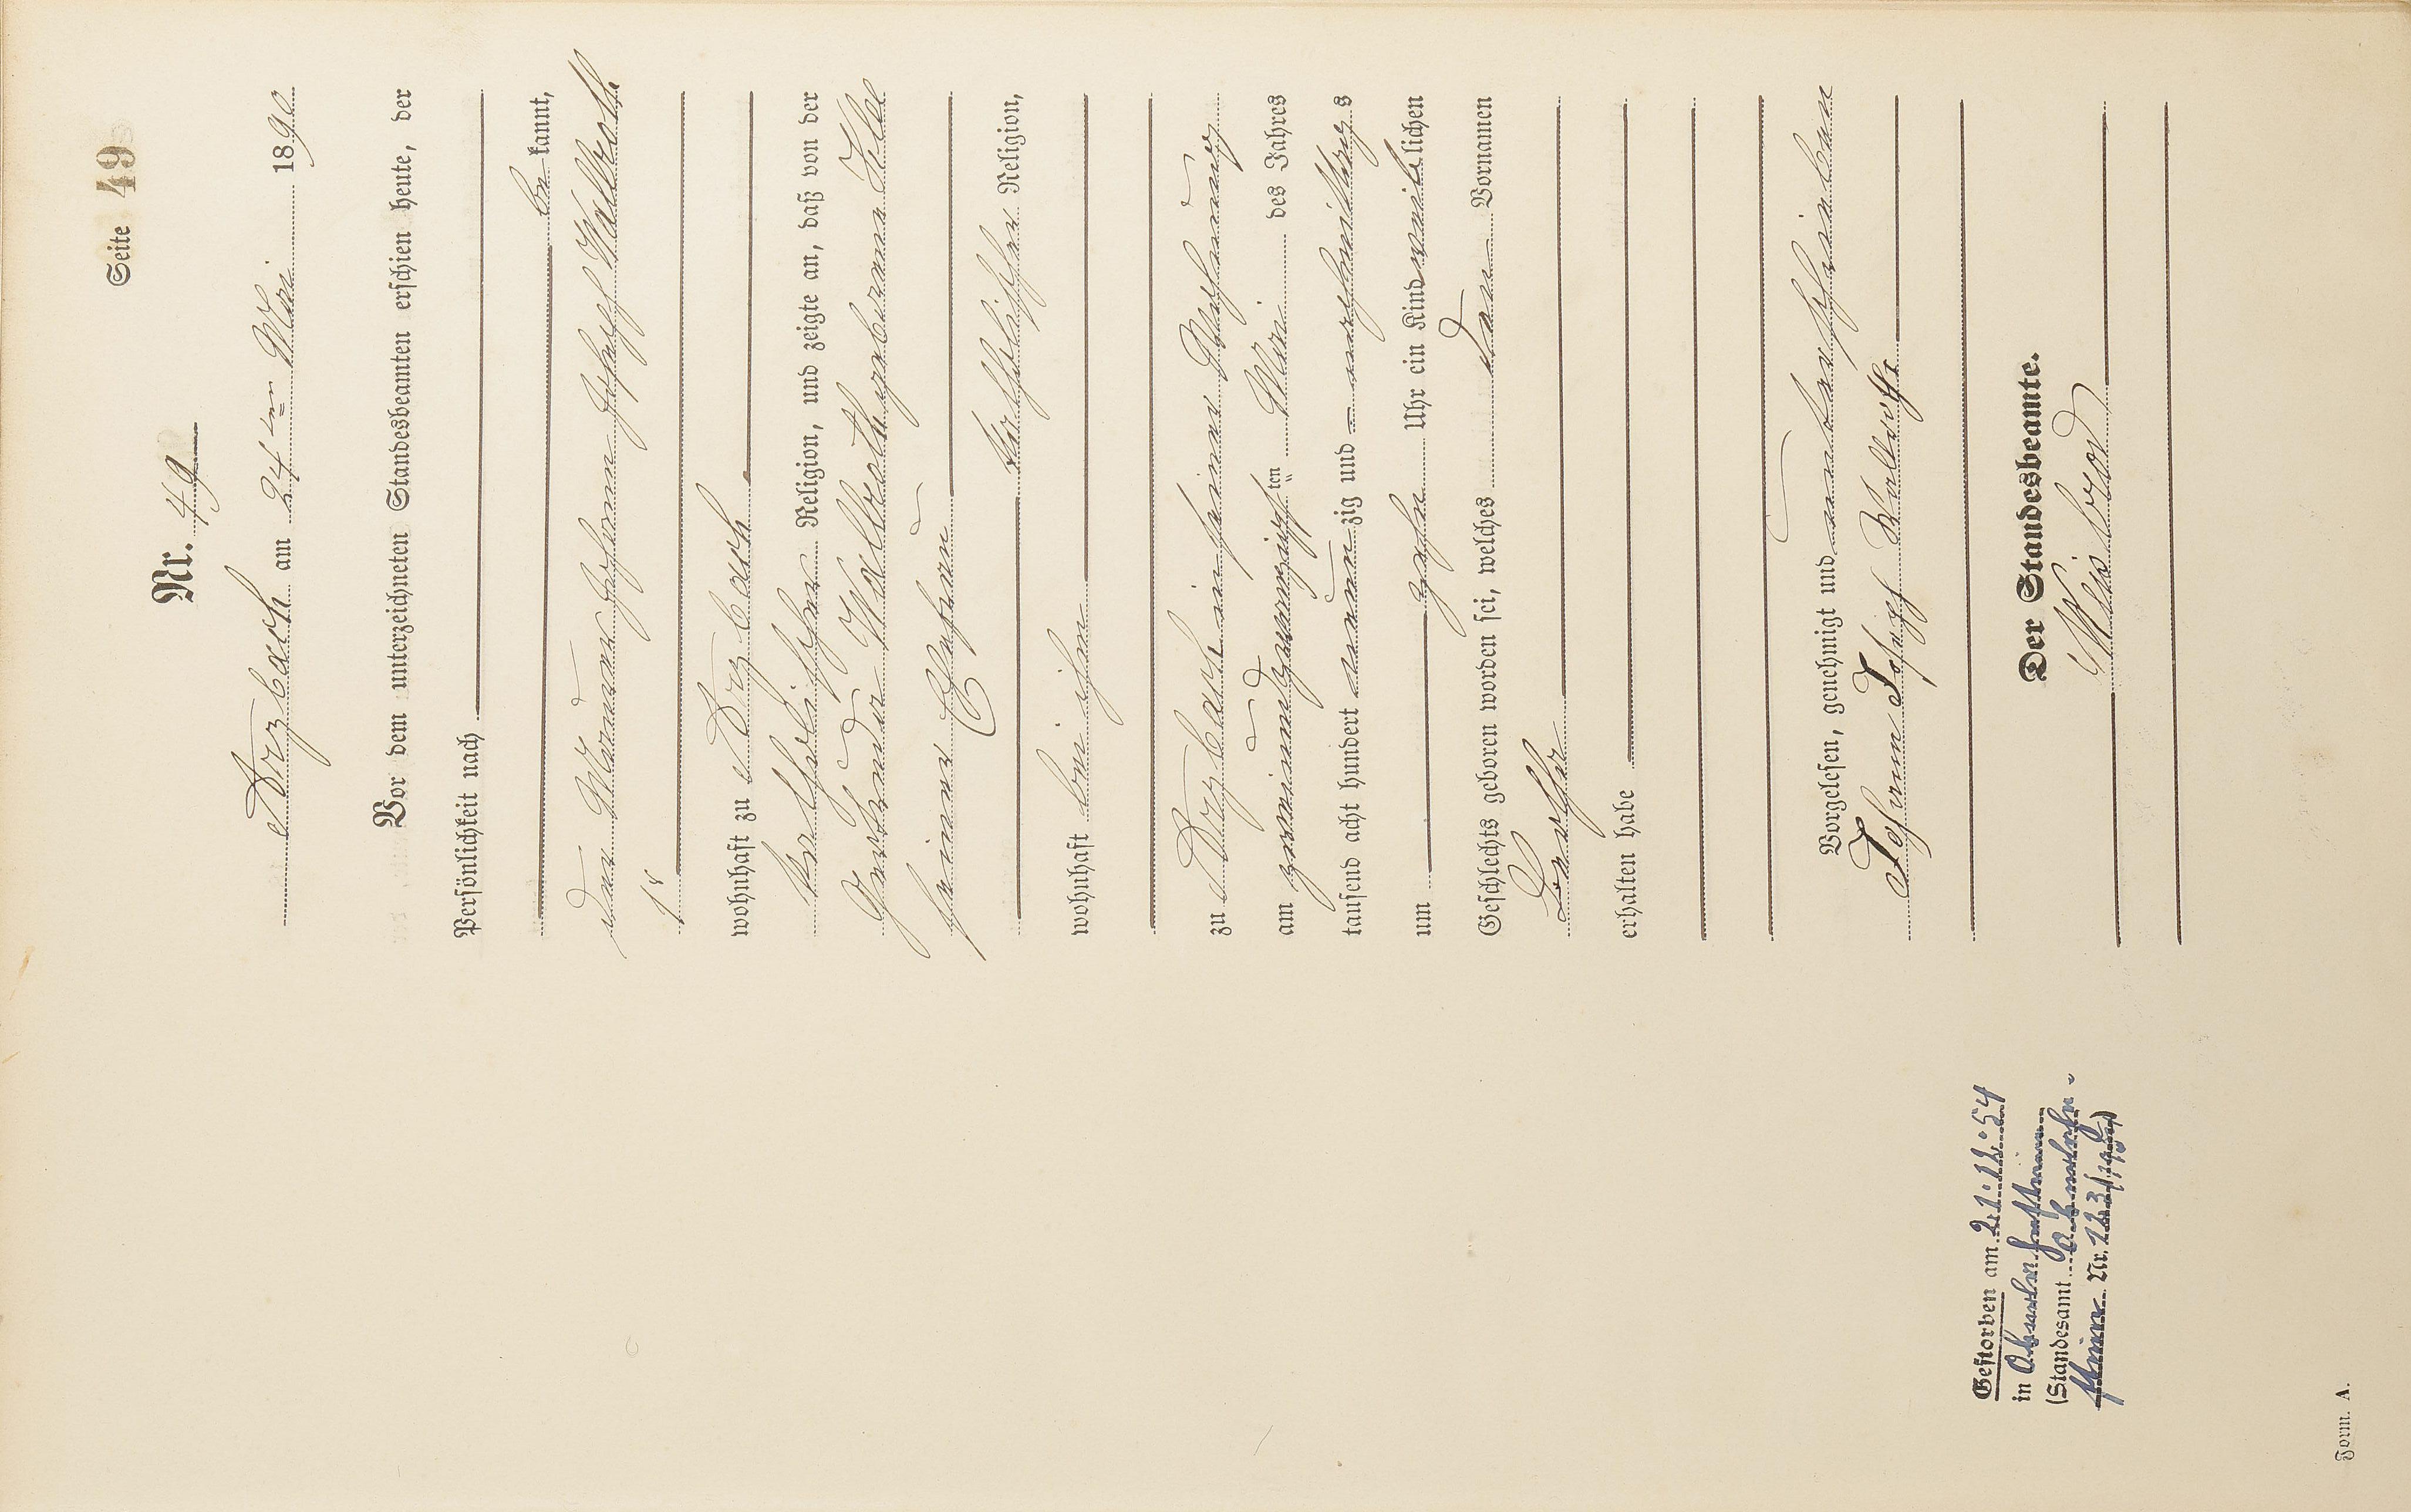 Seite 49
Nr. 49
Arzbach am 24ten Mai 1890
Vor dem unterzeichneten Standesbeamten erschien heute, der
Persönlichkeit nach
be kannt,
der Maurer Johann Joseph Wallroth
wohnhaft zu Arzbach
katholischer Religion, und zeigte an, daß von der
Gertrud Wallroth geborene
seiner Ehefrau
katholischer Religion,
wohnhaft bei ihm
zu Arzbach in seiner Wohnung
am zweiundzwanzigsten Mai des Jahres
tausend acht hundert neunzig und nachmittags
um zehn Uhr ein Kind weiblichen
Geschlechts geboren worden sei, welches den Vornamen
erhalten habe
Vorgelesen, genehmigt und unterschrieben
Johann Josef Wallroth
Der Standesbeamte.
Gestorben am 21.11.54
in
(Standesamt
Nr. 123/1954)
Form. A.